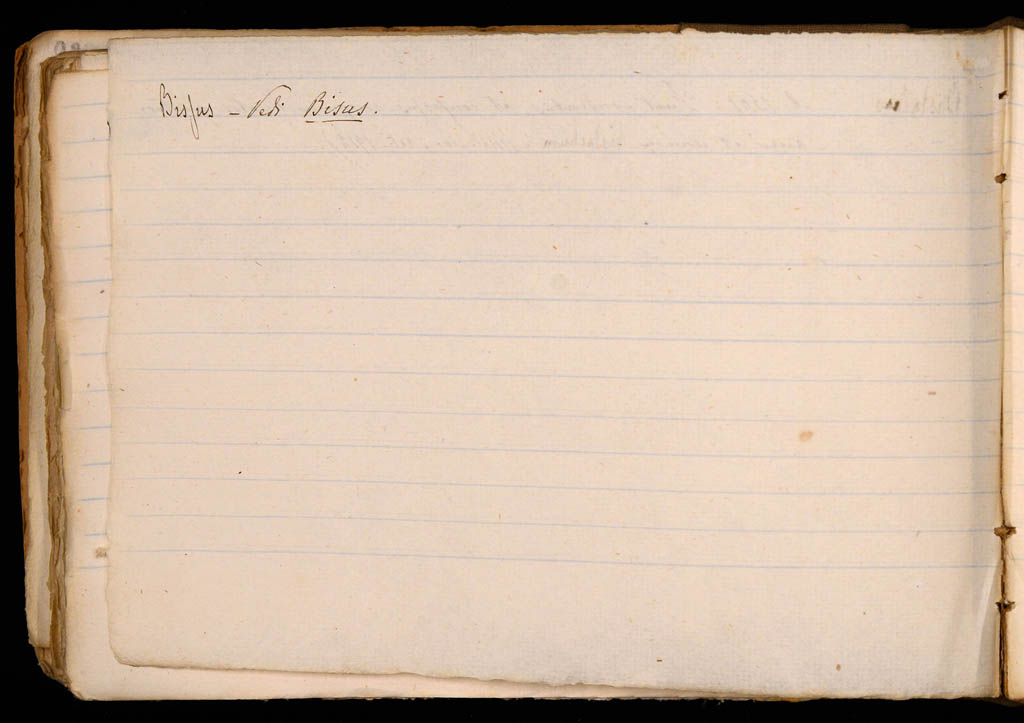 Bissus – Vedi Bisus.